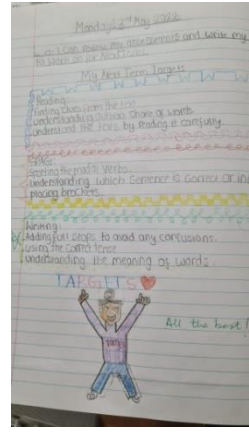 Monday 2nd May 2022
I Can review my assessments and write my
to work on for next
My Next Term Targets
Reading:
Finding clues from the text
understanding phrase or words
understand the text by reading it carefully.
Spotting the modal verbs.
understanding which Sentence is Correct or in
placing brackets.
Writing:
Adding full stops to avoid any confusions.
using the correct tense
understanding the meaning of words.
TARGETS
All the best!